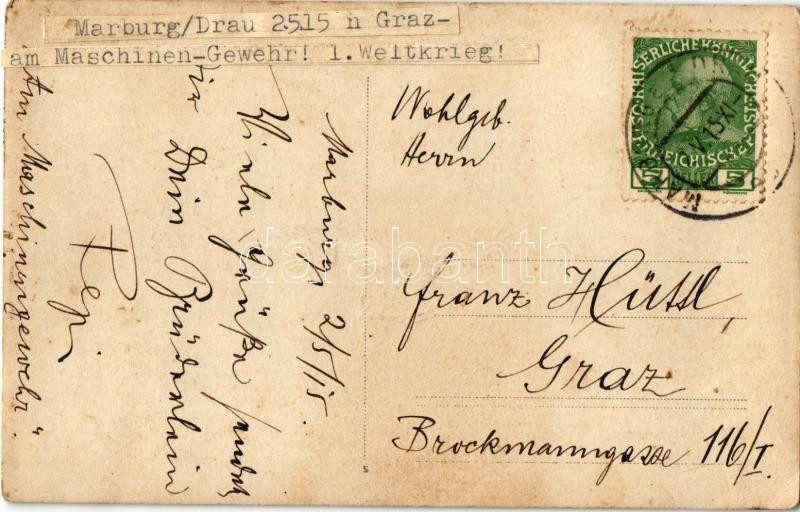 Marburg/Drau 2515 n Graz-
am Maschinen-Gewehr! 1.Weltkrieg!
Marburg 2/5/15.
Viele Grüße sendet
Dir Dein Brüderlein
Pepi
„Am Maschinengewehr“.
Wohlgeb.
Herrn
Franz Hüttl,
Graz
Brockmanngasse 116/I.
5 5
darabanth
s